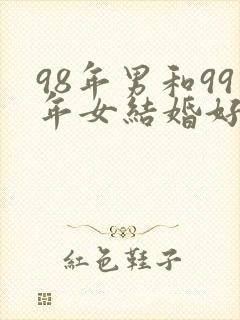 98年男和99
年女結婚好
紅色鞋子